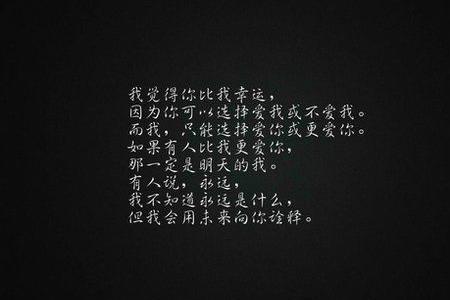 我觉得你比我幸运，
因为你可以选择爱我或不爱我。
而我，只能选择爱你或更爱你。
如果有人比我更爱你，
那一定是明天的我。
有人说，永远，
我不知道永远是什么，
但我会用未来向你诠释。